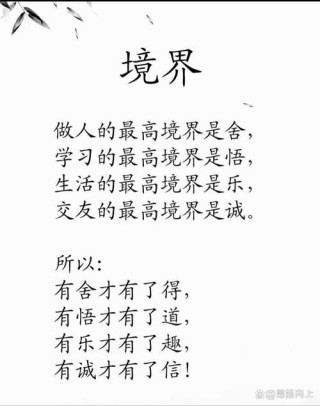 境界
做人的最高境界是舍，
学习的最高境界是悟，
生活的最高境界是乐，
交友的最高境界是诚。
所以：
有舍才有了得，
有悟才有了道，
有乐才有了趣，
有诚才有了信！